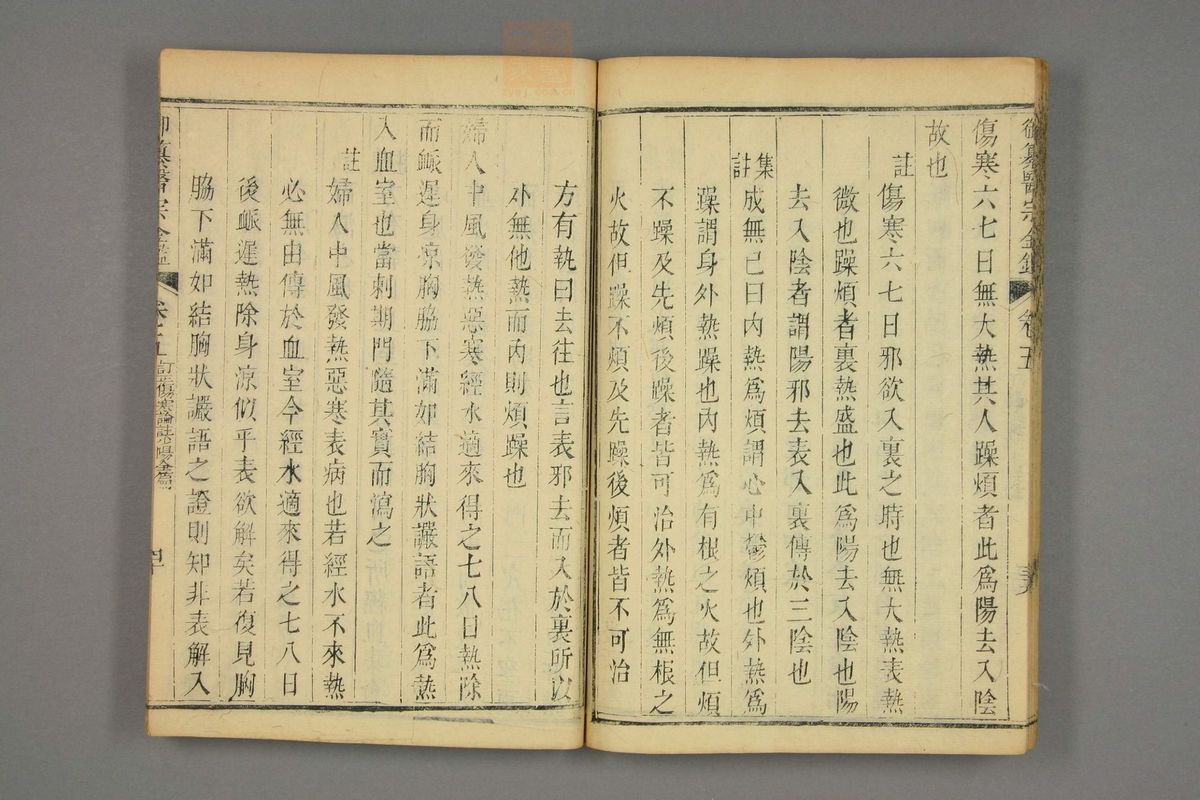 御纂醫宗金鑑 卷五 三九
傷寒六七日無大熱其人躁煩者此爲陽去入陰
故也
註 傷寒六七日邪欲入裏之時也無大熱表熱
微也躁煩者裏熱盛也此爲陽去入陰也陽
去入陰者謂陽邪去表入裏傳於三陰也
集註 成無己曰內熱爲煩謂心中鬱煩也外熱爲
躁謂身外熱躁也內熱爲有根之火故但煩
不躁及先煩後躁者皆可治外熱爲無根之
火故但躁不煩及先躁後煩者皆不可治
方有執曰去往也言表邪去而入於裏所以
外無他熱而內則煩躁也
婦人中風發熱惡寒經水適來得之七八日熱除
而脈遲身涼胸脇下滿如結胸狀讝語者此爲熱
入血室也當刺期門隨其實而瀉之
註 婦人中風發熱惡寒表病也若經水不來熱
必無由傳於血室今經水適來得之七八日
後脈遲熱除身涼似乎表欲解矣若復見胸
脇下滿如結胸狀讝語之證則知非表解入
御纂醫宗金鑑 卷五 訂正傷寒論註少陽全篇 四十